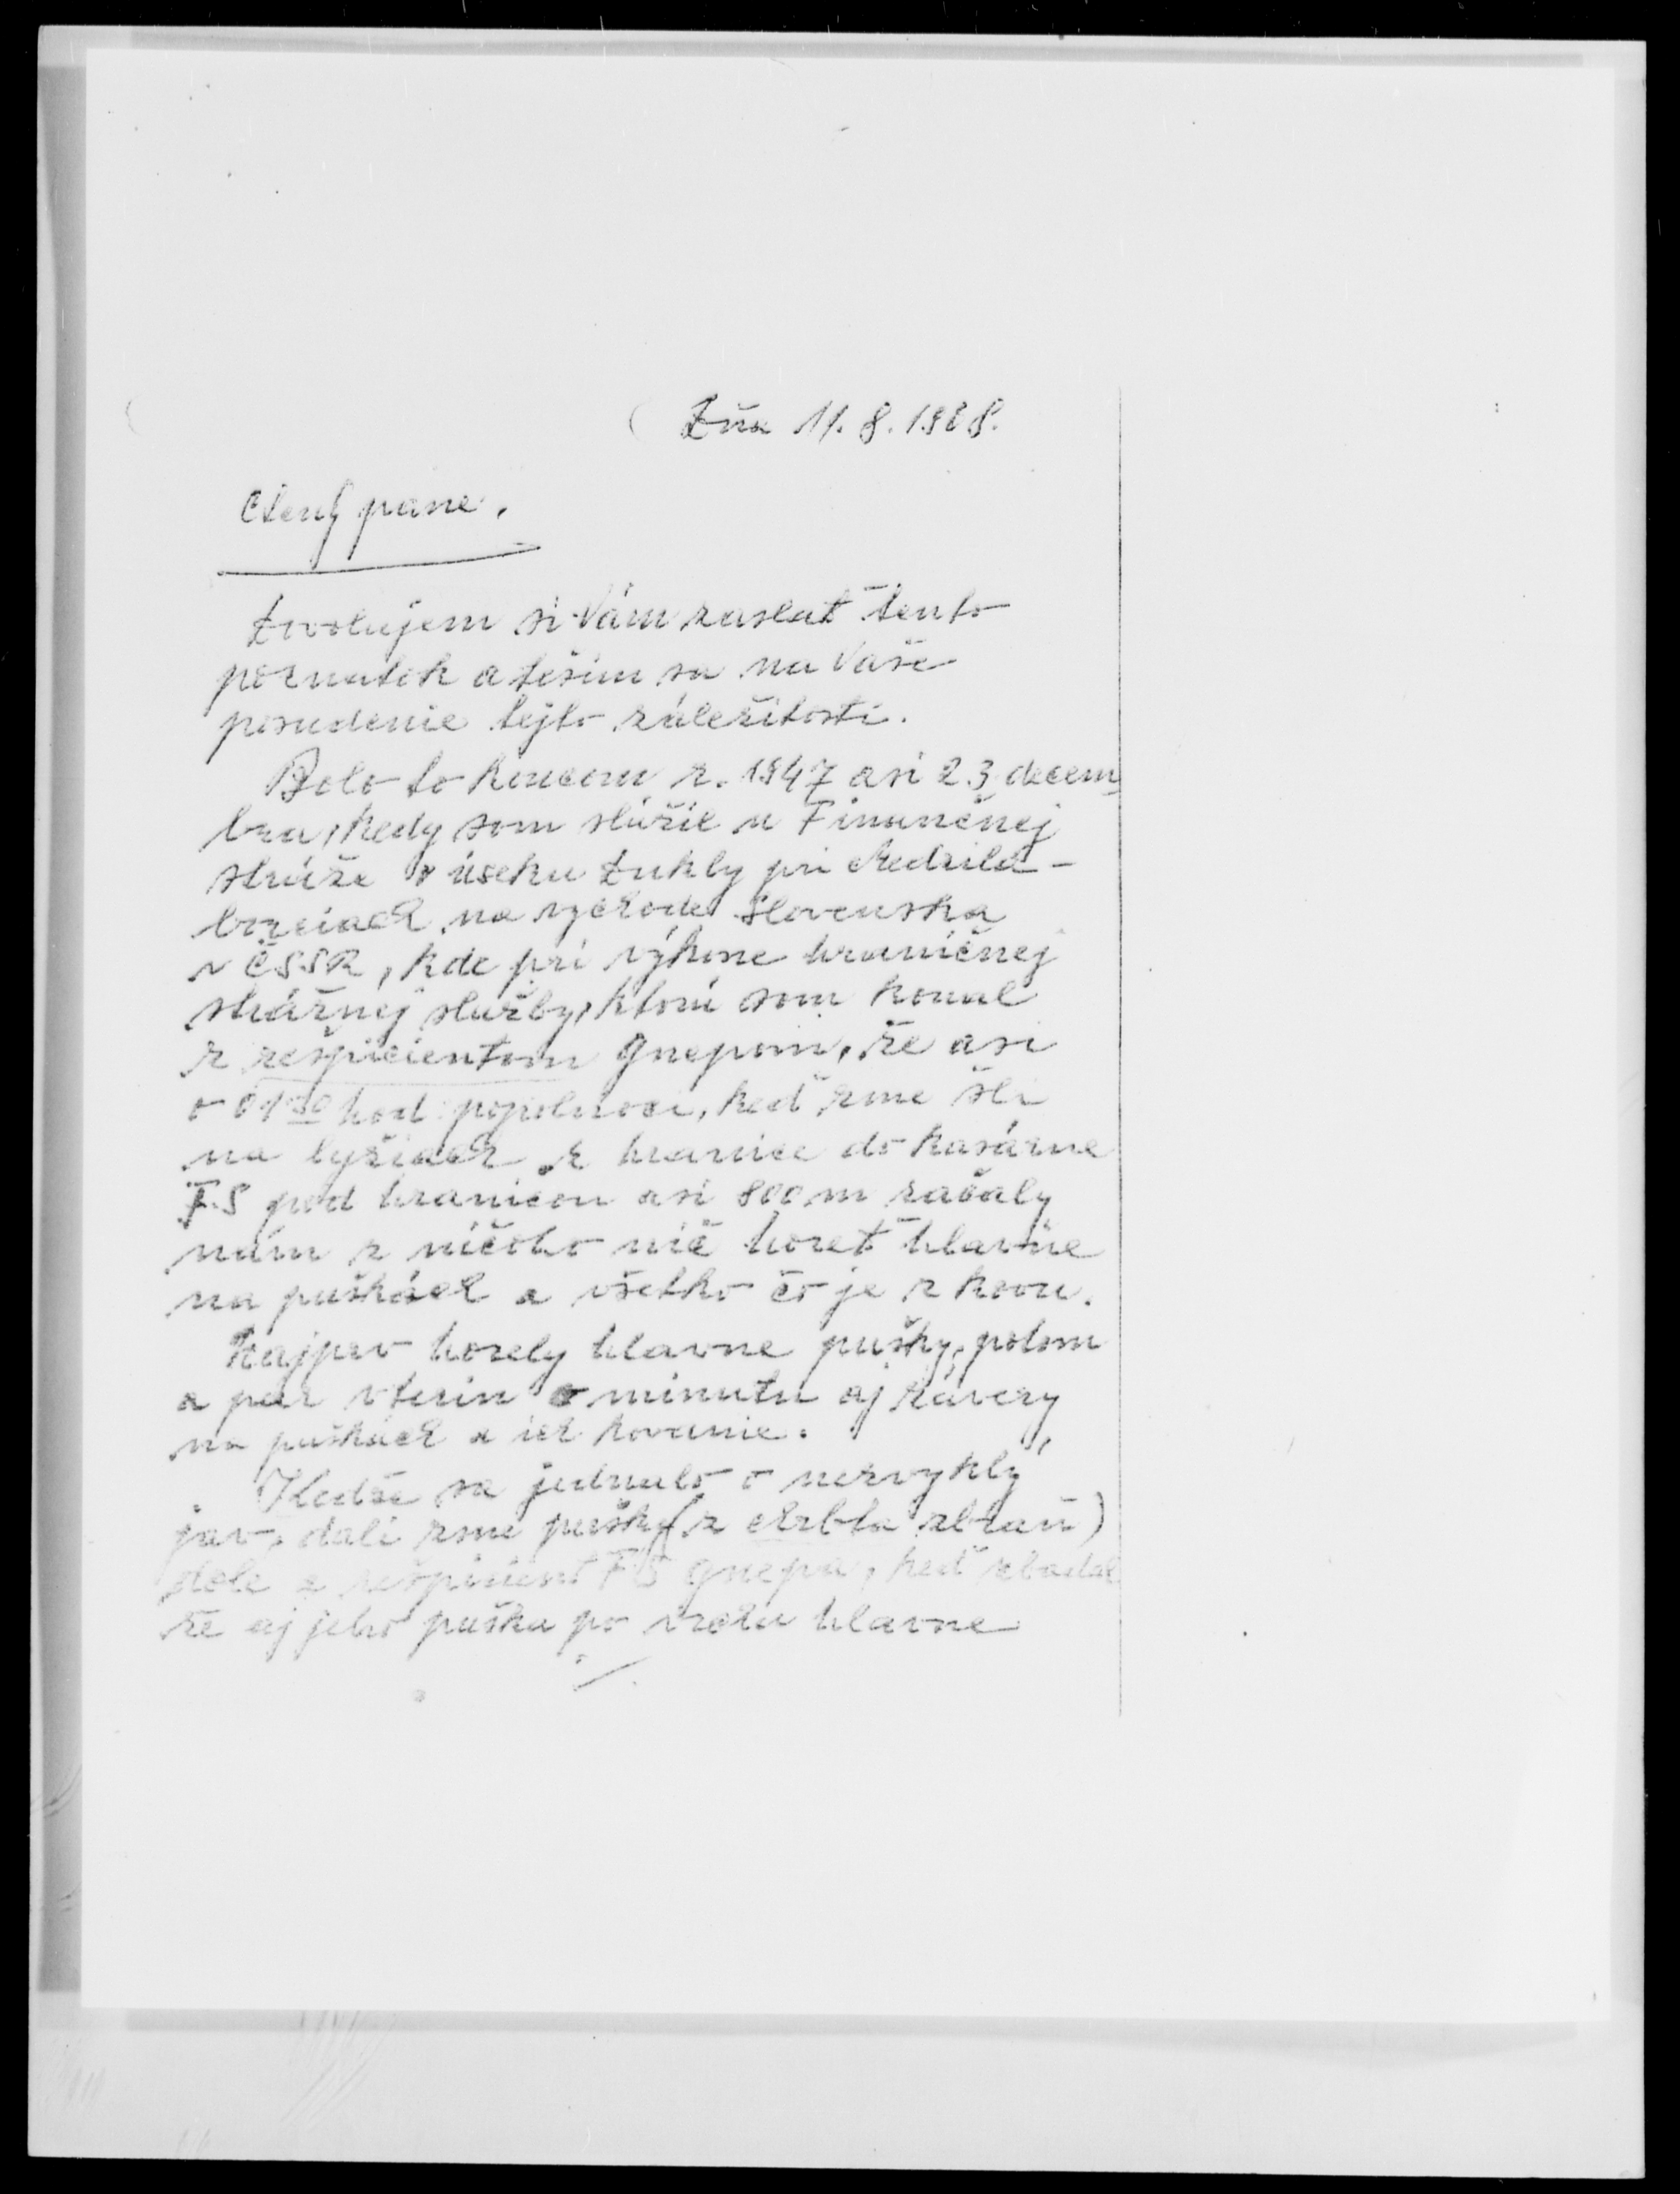 Dňa 11. 8. 1968.
Ctený pane.
Dovolujem si Vám zaslať tento
poznatok a teším sa na Vaše
posudenie tejto záležitosti.
Bolo to koncom r. 1947 asi 23 decem
bra, kedy som slúžil u Finančnej
stráže v úseku Dukly pri Medzila-
borciach na východe Slovenska
v ČSSR, kde pri výkone hraničnej
strážnej služby, ktorú som konal
z rešpicientom Gnepom, že asi
o 01 30 hod popolnoci, keď zme šli
na lyžiach z hranice do kasárne
F.S pod hranicou asi 800 m začaly
nám z ničoho nič horeť hlavne
na puškách a všetko čo je z kovu.
Najprv horely hlavne pušky, potom
a pár vterin o minutu aj závery
na puškách a ich kovanie.
Kedže sa jednalo o nezvyklý
jav, dali zme pušky (z chrbta zbraň)
dole a rešpicient FS Gnepa, keď zbadal
že aj jeho puška po vrchu hlavne
./.